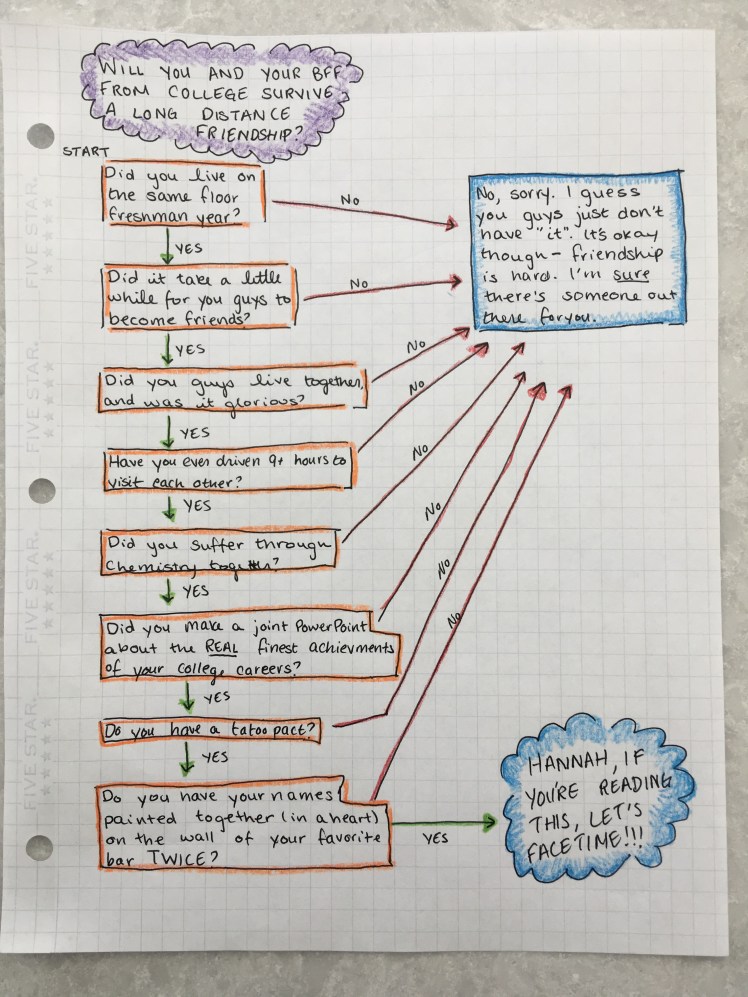 WILL YOU AND YOUR BFF
FROM COLLEGE SURVIVE
A LONG DISTANCE
FRIENDSHIP?
START
Did you live on
the same floor
freshman year?
No
YES
No, sorry. I guess
you guys just don't
have "it". It's okay
though - friendship
is hard. I'm sure
there's someone out
there for you.
Did it take a little
while for you guys to
become friends?
No
YES
Did you guys live together,
and was it glorious?
No
YES
Have you ever driven 9+ hours to
visit each other?
No
YES
Did you suffer through
Chemistry together?
No
YES
Did you make a joint PowerPoint
about the REAL finest achievments
of your colleg careers?
No
YES
Do you have a tatoo pact?
No
YES
Do you have your names
painted together (in a heart)
on the wall of your favorite
bar TWICE?
No
YES
HANNAH, IF
YOU'RE READING
THIS, LET'S
FACETIME!!!
FIVE STAR.
FIVE STAR.
FIVE STAR.
FIVE STAR.